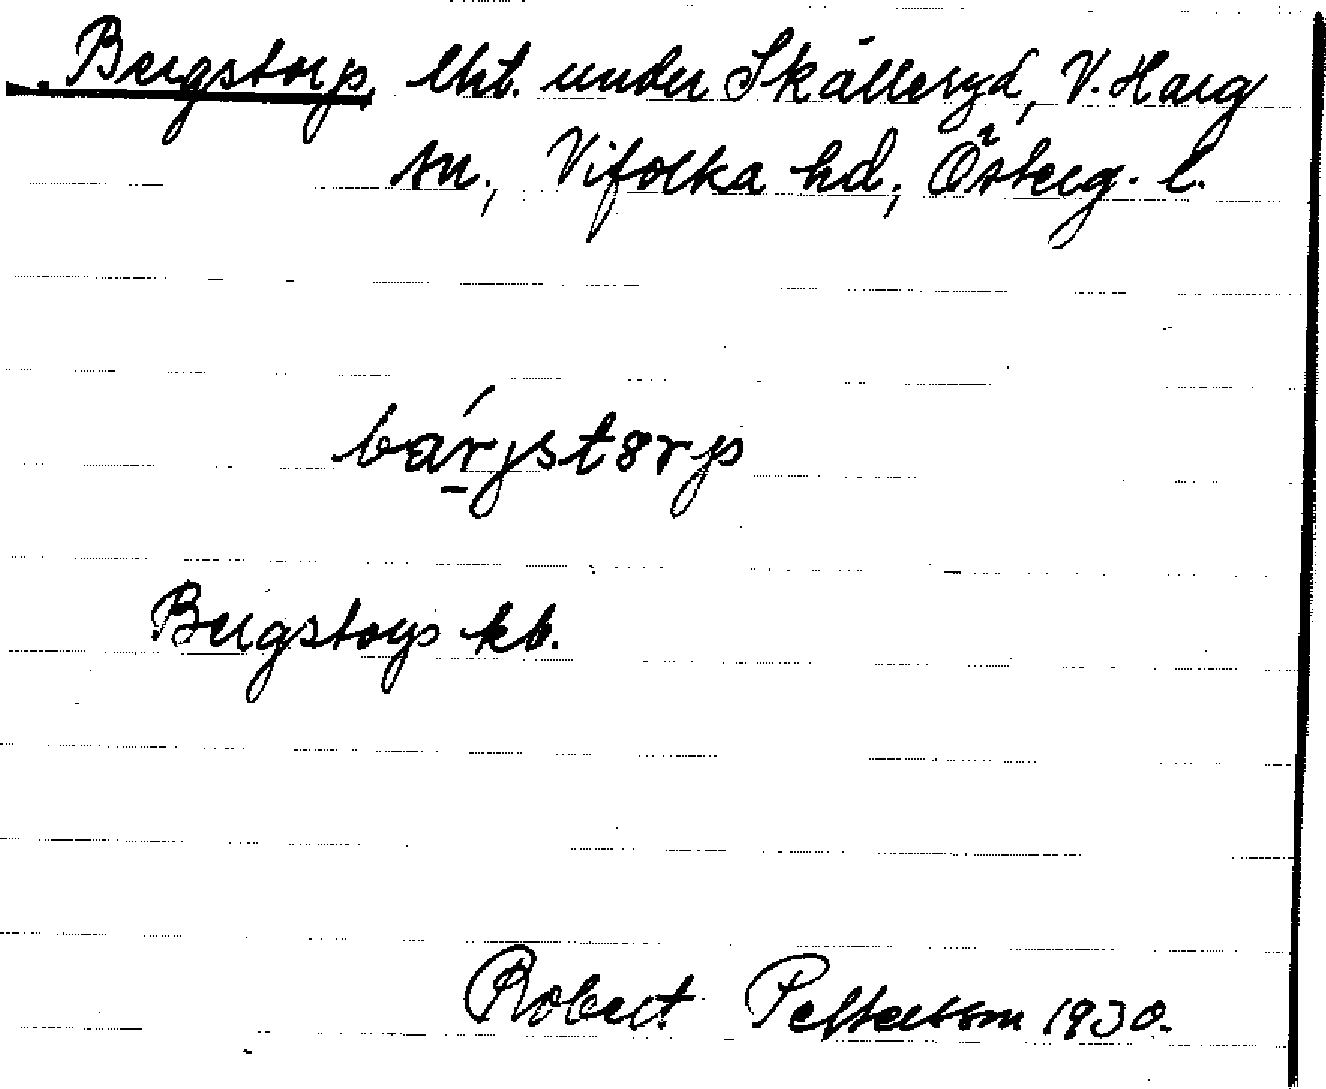 Bergstorp, lht. under Skälleryd, V. Harg
sn., Vifolka hd; Österg. l.
bárjstorp
Bergstorp kb.
Robert Pettersson 1930.